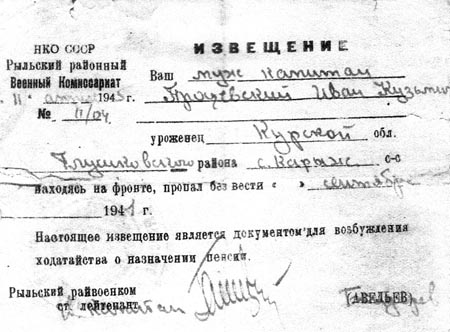 НКО СССР
Рыльский районный
Военный Комиссариат
„11" апр 1945 г.
№ 11/04
ИЗВЕЩЕНИЕ
Ваш муж капитан
Иван Кузьмич
уроженец Курской обл.
Глушковского района с. Карыж с-с
находясь на фронте, пропал без вести « » сентябре
1941 г.
Настоящее извещение является документом для возбуждения
ходатайства о назначении пенсии.
Рыльский райвоенком
ст. лейтенант
капитан